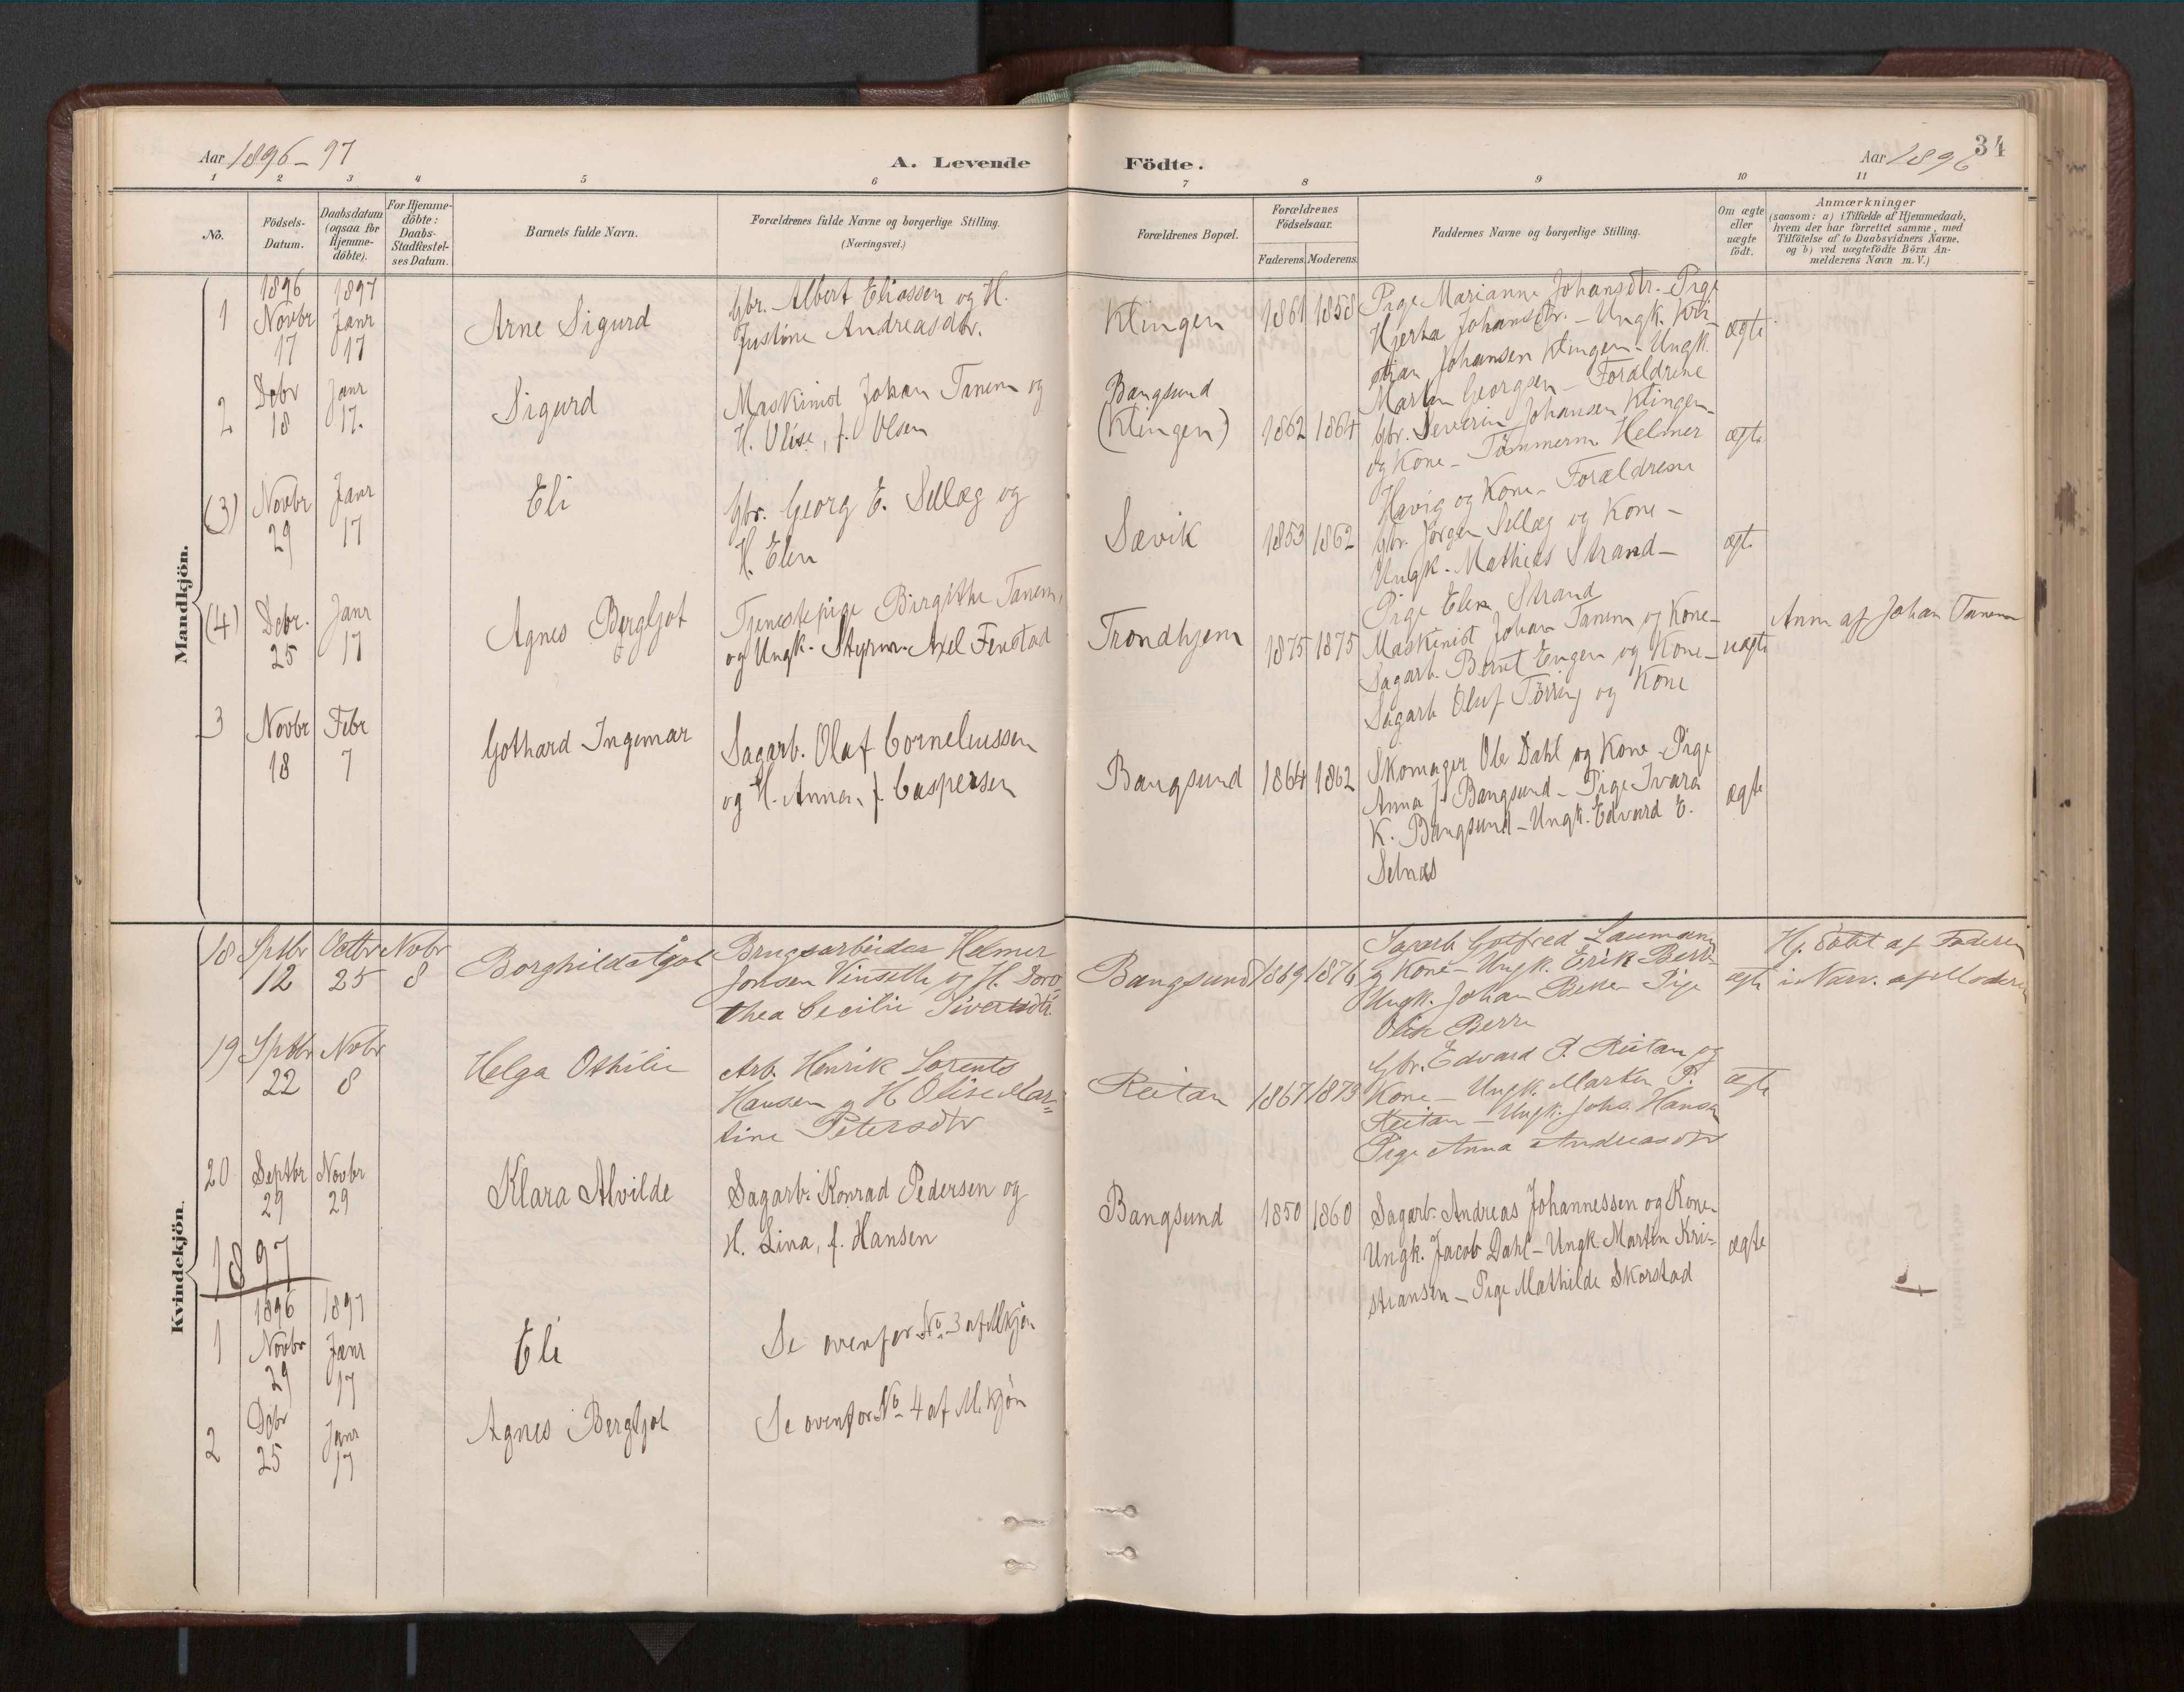 Aar 1896-97
A. Levende
Födte.
Aar 1896
34
1 2 3 4 5 6 7 8 9 10 11
No.
Födsels-Datum.
Daabsdatum (ogsaa for Hjemme-döbte).
For Hjemme-döbte: Daabs-Stadfæstel-ses Datum.
Barnets fulde Navn.
Forældrenes fulde Navne og borgerlige Stilling.
(Næringsvei.)
Forældrenes Bopæl.
Forældrenes Födselsaar.
Faderens. Moderens.
Faddernes Navne og borgerlige Stilling.
Om ægte eller uægte födt.
Anmærkninger
(saasom: a) i Tilfælde af Hjemmedaab,
hvem der har forrettet samme, med
Tilföielse af to Daabsvidners Navne,
og b) ved uægtefödte Börn An-
melderens Navn m. V.)
Mandkjön.
1
1896 Novbr 17
1897 Janr 17
Arne Sigurd
Gbr. Albert Eliassen og H.
Justine Andreasdtr.
Klingen
1861 1858
Pige Marianne Johansdtr. - Pige
Hjerta Johansdtr. - Ungk. Kri-
stian Johansen Klingen - Ungk.
Martin Georgsen - Forældrene
ægte
2
Debr 18
Janr 17.
Sigurd
Maskinist Johan Tanem og
H. Olise, f. Olsen
Bangsund
(Klingen)
1862 1864
Gbr. Severin Johansen Klingen -
og Kone - Tömmerm. Helmer
Havig og Kone - Forældrene
ægte
(3)
Novbr 29
Janr 17
Eli
Gbr. Georg E. Sellæg og
H. Elen
Sævik
1853 1862
Gbr. Jörgen Sellæg og Kone -
Ungk. Mathias Strand -
Pige Elen Strand
ægte
(4)
Debr. 25
Janr 17
Agnes Bergljot
Tjenestepige Birgitte Tanem,
og Ungk. Styrm. Axel Fenstad
Trondhjem
1875 1875
Maskinist Johan Tanem og Kone -
Sagarb. Bernt Engen og Kone -
Sagarb Oluf Törring og Kone
uægte
Anm af Johan Tanem
3
Novbr 18
Febr 7
Gothard Ingemar
Sagarb. Olaf Corneliussen
og H. Anna, f. Caspersen
Bangsund
1864 1862
Skomager Ole Dahl og Kone - Pige
Anna J. Bangsund - Pige Ivara
K. Bangsund - Ungk. Edvard E.
Selnæs
ægte
Kvindekjön.
18
Sptbr 12
Octbr 25
Nobr 8
Borghild
Brugsarbeider Helmer
Jonsen og H. Doro-
thea Cecilie Sivertsdtr.
Bangsund
1869 1876
Sagarb Gotfred Laumann
og Kone - Ungk. Erik Berre
Ungk. Johan Pige
Olise Berre
ægte
Hj. döbt af Faderen
af Moderen
19
Sptbr 22
Nobr 8
Helga Othilie
Arb. Henrik Lorents
Hansen og H Olise Mar-
tine Petersdtr
Reitan
1867 1873
Gbr. Edvard P. Reitan og
Kone - Ungk. Marten P.
Reitan - Ungk. Johs. Hansen
Pige Anna Andreasdtr
ægte
20
Septbr 29
Novbr 29
Klara Alvilde
Sagarb. Konrad Pedersen og
H. Lina, f. Hansen
Bangsund
1850 1860
Sagarb. Andreas Johannessen og Kone -
Ungk. Jacob Dahl - Ungk. Martin Kri-
stiansen - Pige Mathilde Skorstad
ægte
1897
1
1896 Novbr 29
1897 Janr 17
Eli
Se ovenfor No 3 af Mkjön
2
Debr 25
Janr 17
Agnes Bergljot
Se ovenfor No 4 af M. kjön